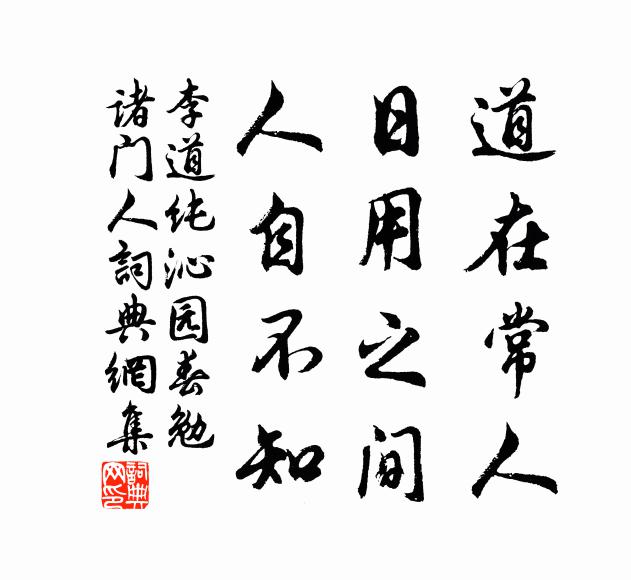 道在常人
日用之间
人自不知
李道纯沁园春勉
诸门人詞典網集
詞典网印